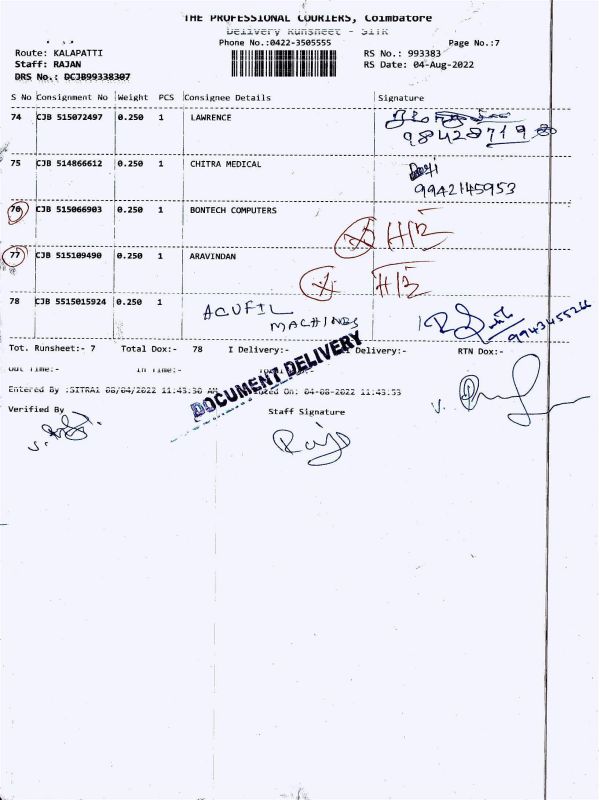 THE PROFESSIONAL COURIERS, Coimbatore
Delivery Runsheet - SITR
Phone No.:0422-3505555 Page No.:7
Route: KALAPATTI RS No.: 993383
Staff: RAJAN RS Date: 04-Aug-2022
DRS No.: DCJB99338307
S No Consignment No Weight PCS Consignee Details Signature
74 CJB 515072497 0.250 1 LAWRENCE
98428719
75 CJB 514866612 0.250 1 CHITRA MEDICAL
9942145953
76 CJB 515066903 0.250 1 BONTECH COMPUTERS
77 CJB 515109490 0.250 1 ARAVINDAN
78 CJB 5515015924 0.250 1 ACUFIL MACHINES
9943455266
Tot. Runsheet:- 7 Total Dox:- 78 I Delivery:- Delivery:- RTN Dox:-
Out Time:- In Time:-
Entered By :SITRA1 08/04/2022 11:43:30 AM On: 04-08-2022 11:43:53
DOCUMENT DELIVERY
Verified By Staff Signature